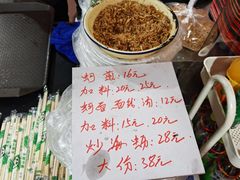 蚵煎:16元
加料:20元 25元
蚵香面线沟:12元
加料:15元 20元
炒海蛎:28元
大份:38元